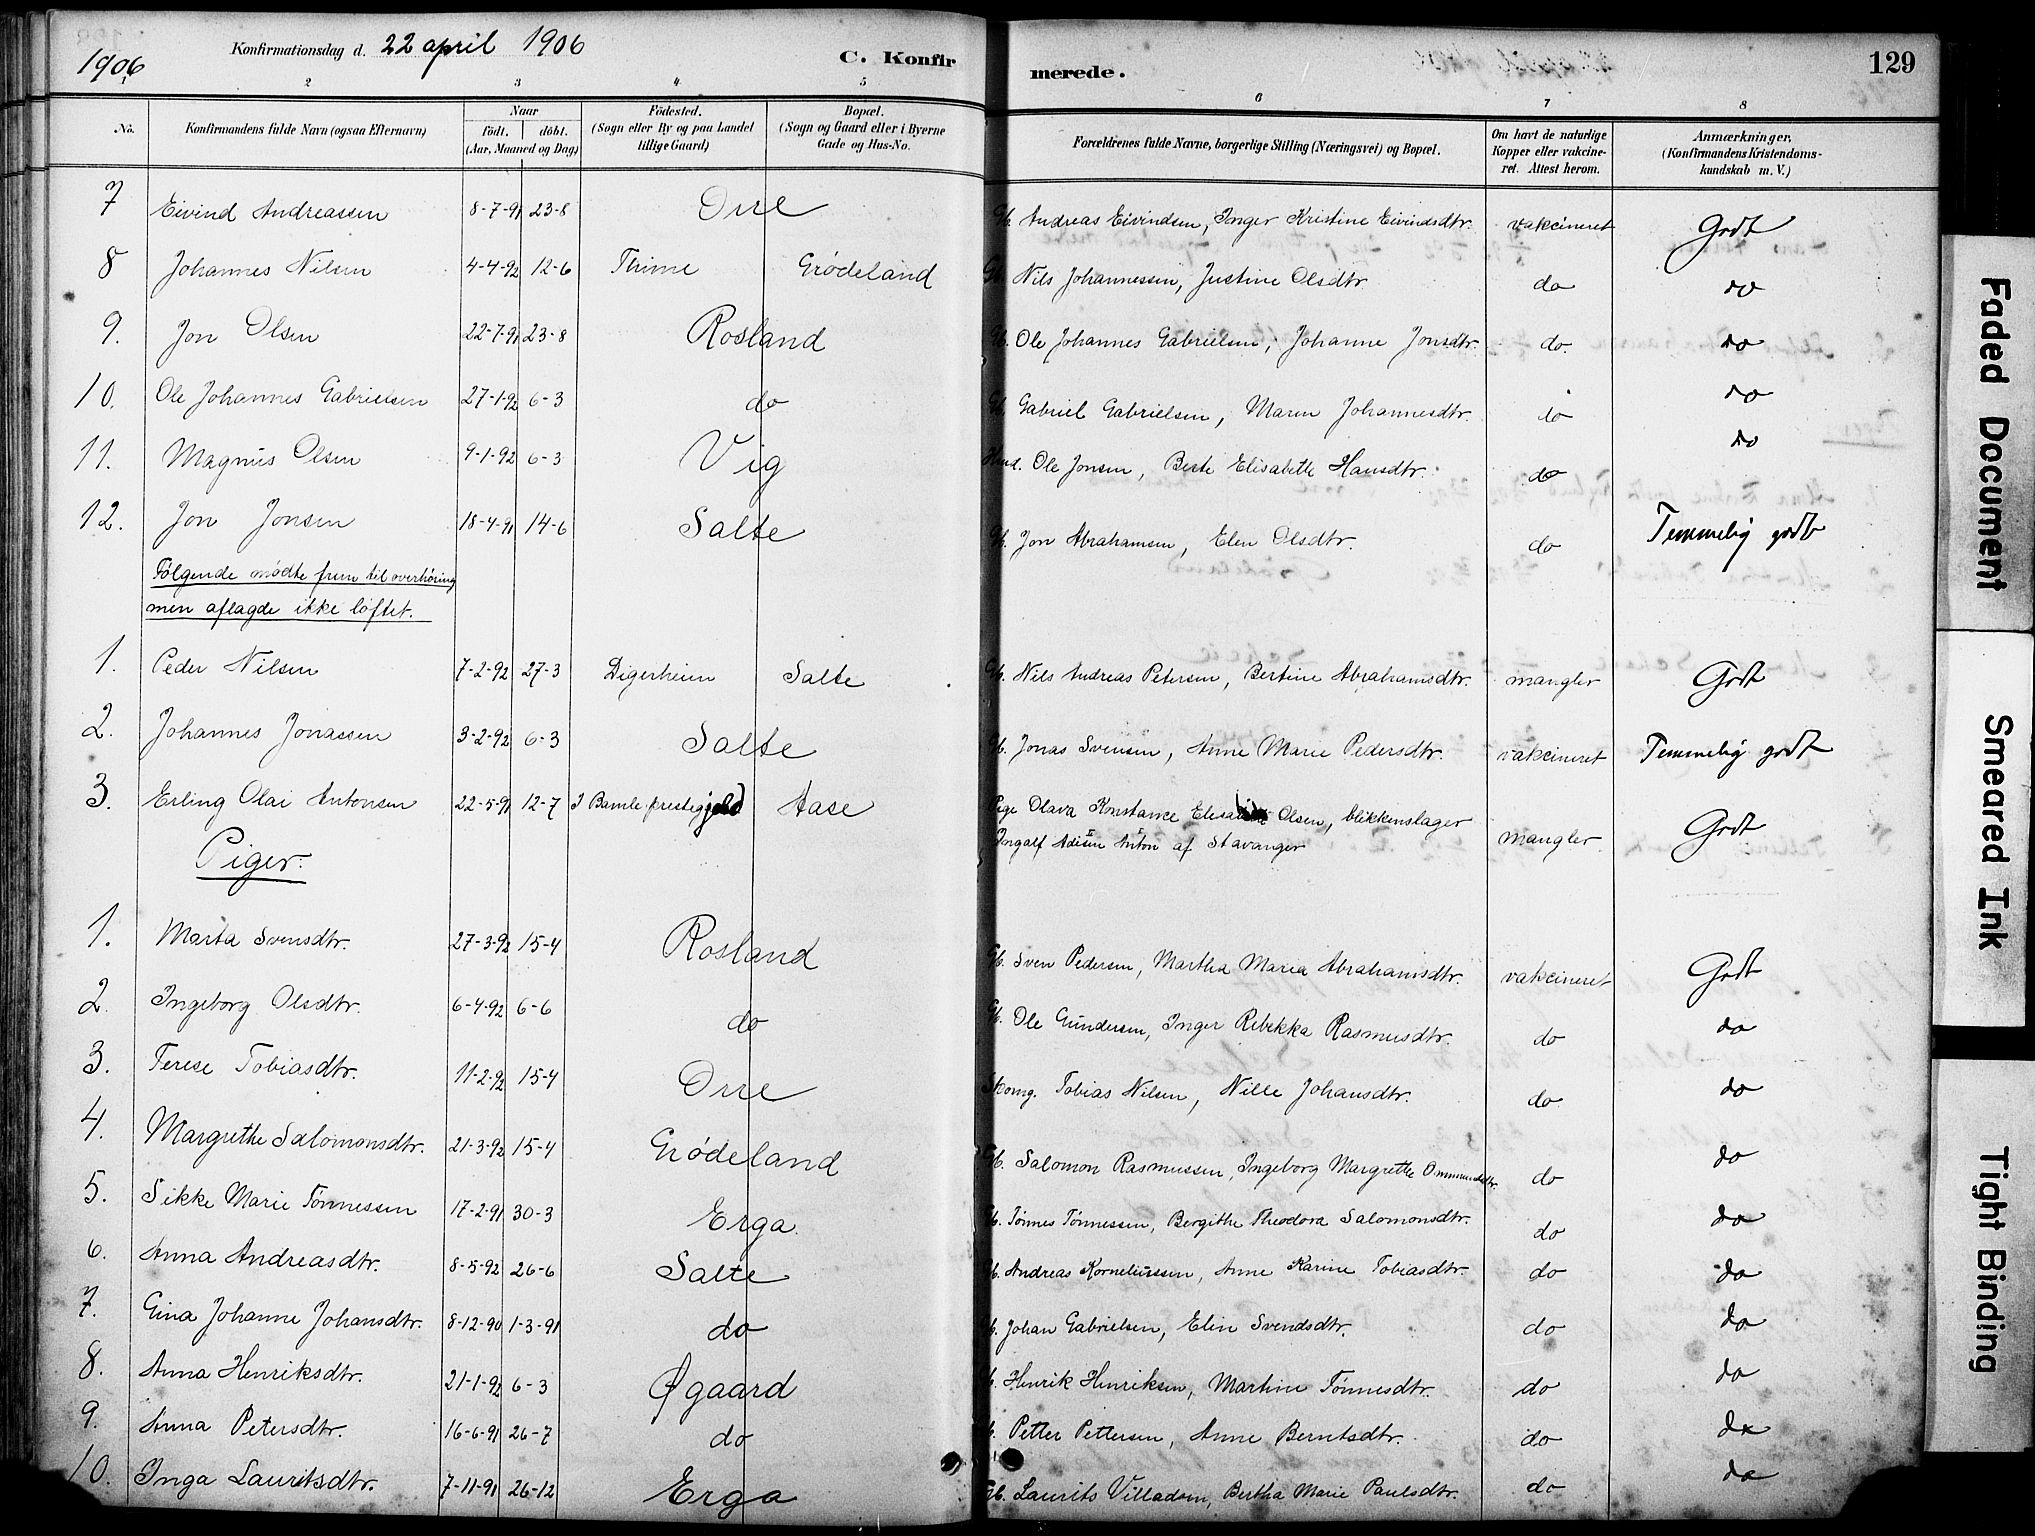 1906 Konfirmationsdag d. 22 april 1906 C. Konfirmerede. 129
1 2 3 4 5 6 7 8
No. Konfirmandens fulde Navn (ogsaa Efternavn) Naar födt. döbt. (Aar, Maaned og Dag) Födested. (Sogn eller By og paa Landet tillige Gaard) Bopæl. (Sogn og Gaard eller i Byerne Gade og Hus-No. Forældrenes fulde Navne, borgerlige Stilling (Næringsvei) og Bopæl. Om havt de naturlige Kopper eller vakcineret. Attest herom. Anmærkninger, (Konfirmandens Kristendomskundskab m. V.)
7 Eivind Andreassen 8-7-91 23-8 Orre Gb. Andreas Eivindsen, Inger Kristine Eivindsdtr. vakcineret Godt
8 Johannes Nilsen 4-4-92 12-6 Thime Grödeland Gb. Nils Johannessen, Justine Olsdtr. do do
9. Jon Olsen 22-7-91 23-8 Rosland Gb. Ole Johannes Gabrielsen, Johanne Jonsdtr. do. do
10. Ole Johannes Gabrielsen 27-1-92 6-3 do Gb. Gabriel Gabrielsen, Maren Johannesdtr. do do
11. Magnus Olsen 9-1-92 6-3 Vig Ole Jonsen, Berte Elisabeth Hansdtr. do do
12. Jon Jonsen 18-4-91 14-6 Salte Gb. Jon Abrahamsen, Elen Olsdtr. do Temmelig godt
Fölgende mödte frem til overhöring
men aflagde ikke löftet.
1. Peder Nilsen 7-2-92 27-3 Digerheim Salte Gb. Nils Andreas Petersen, Bertine Abrahamsdtr. mangler Godt
2. Johannes Jonassen 3-2-92 6-3 Salte Gb. Jonas Svensen, Anne Marie Pedersdtr. vakcineret Temmelig godt
3. Erling Olai Antonsen 22-5-91 12-7 I Bamle prestegjeld Aase Pige Olava Konstance Olsen, blikkenslager
Ingolf Anton af Stavanger mangler. Godt
Piger.
1. Marta Svensdtr. 27-3-92 15-4 Rosland Gb. Sven Pedersen, Martha Maria Abrahamsdtr. vakcineret Godt
2. Ingeborg Olsdtr. 6-4-92 6-6 do Gb. Ole Gundersen, Inger Rebekka Rasmusdtr. do do
3. Terese Tobiasdtr. 11-2-92 15-4 Orre Skomg. Tobias Nilsen, Nille Johansdtr. do do
4. Margrethe Salomonsdtr. 21-3-92 15-4 Grödeland Gb. Salomon Rasmussen, Ingeborg Margrethe Ommundsdtr. do do
5. Sikke Marie Tönnessen 17-2-91 30-3 Erga. Gb. Tönnes Tönnessen, Bergithe Theodora Salomonsdtr. do do
6. Anna Andreasdtr. 8-5-92 26-6 Salte Gb. Andreas Korneliussen, Anne Karine Tobiasdtr. do do
7. Gina Johanne Johansdtr. 8-12-90 1-3-91 do Gb. Johan Gabrielsen, Elin Svendsdtr. do do
8. Anna Henriksdtr. 21-1-92 6-3 Øgaard Gb. Henrik Henriksen, Martine Tönnesdtr. do do
9. Anna Petersdtr. 16-6-91 26-7 do Gb. Petter Pettersen, Anne Berntsdtr. do do
10. Inga Lauritsdtr. 7-11-91 26-12 Erga Gb. Laurits Villadsen, Bertha Marie Paulsdtr. do do
Faded Document
Smeared Ink
Tight Binding